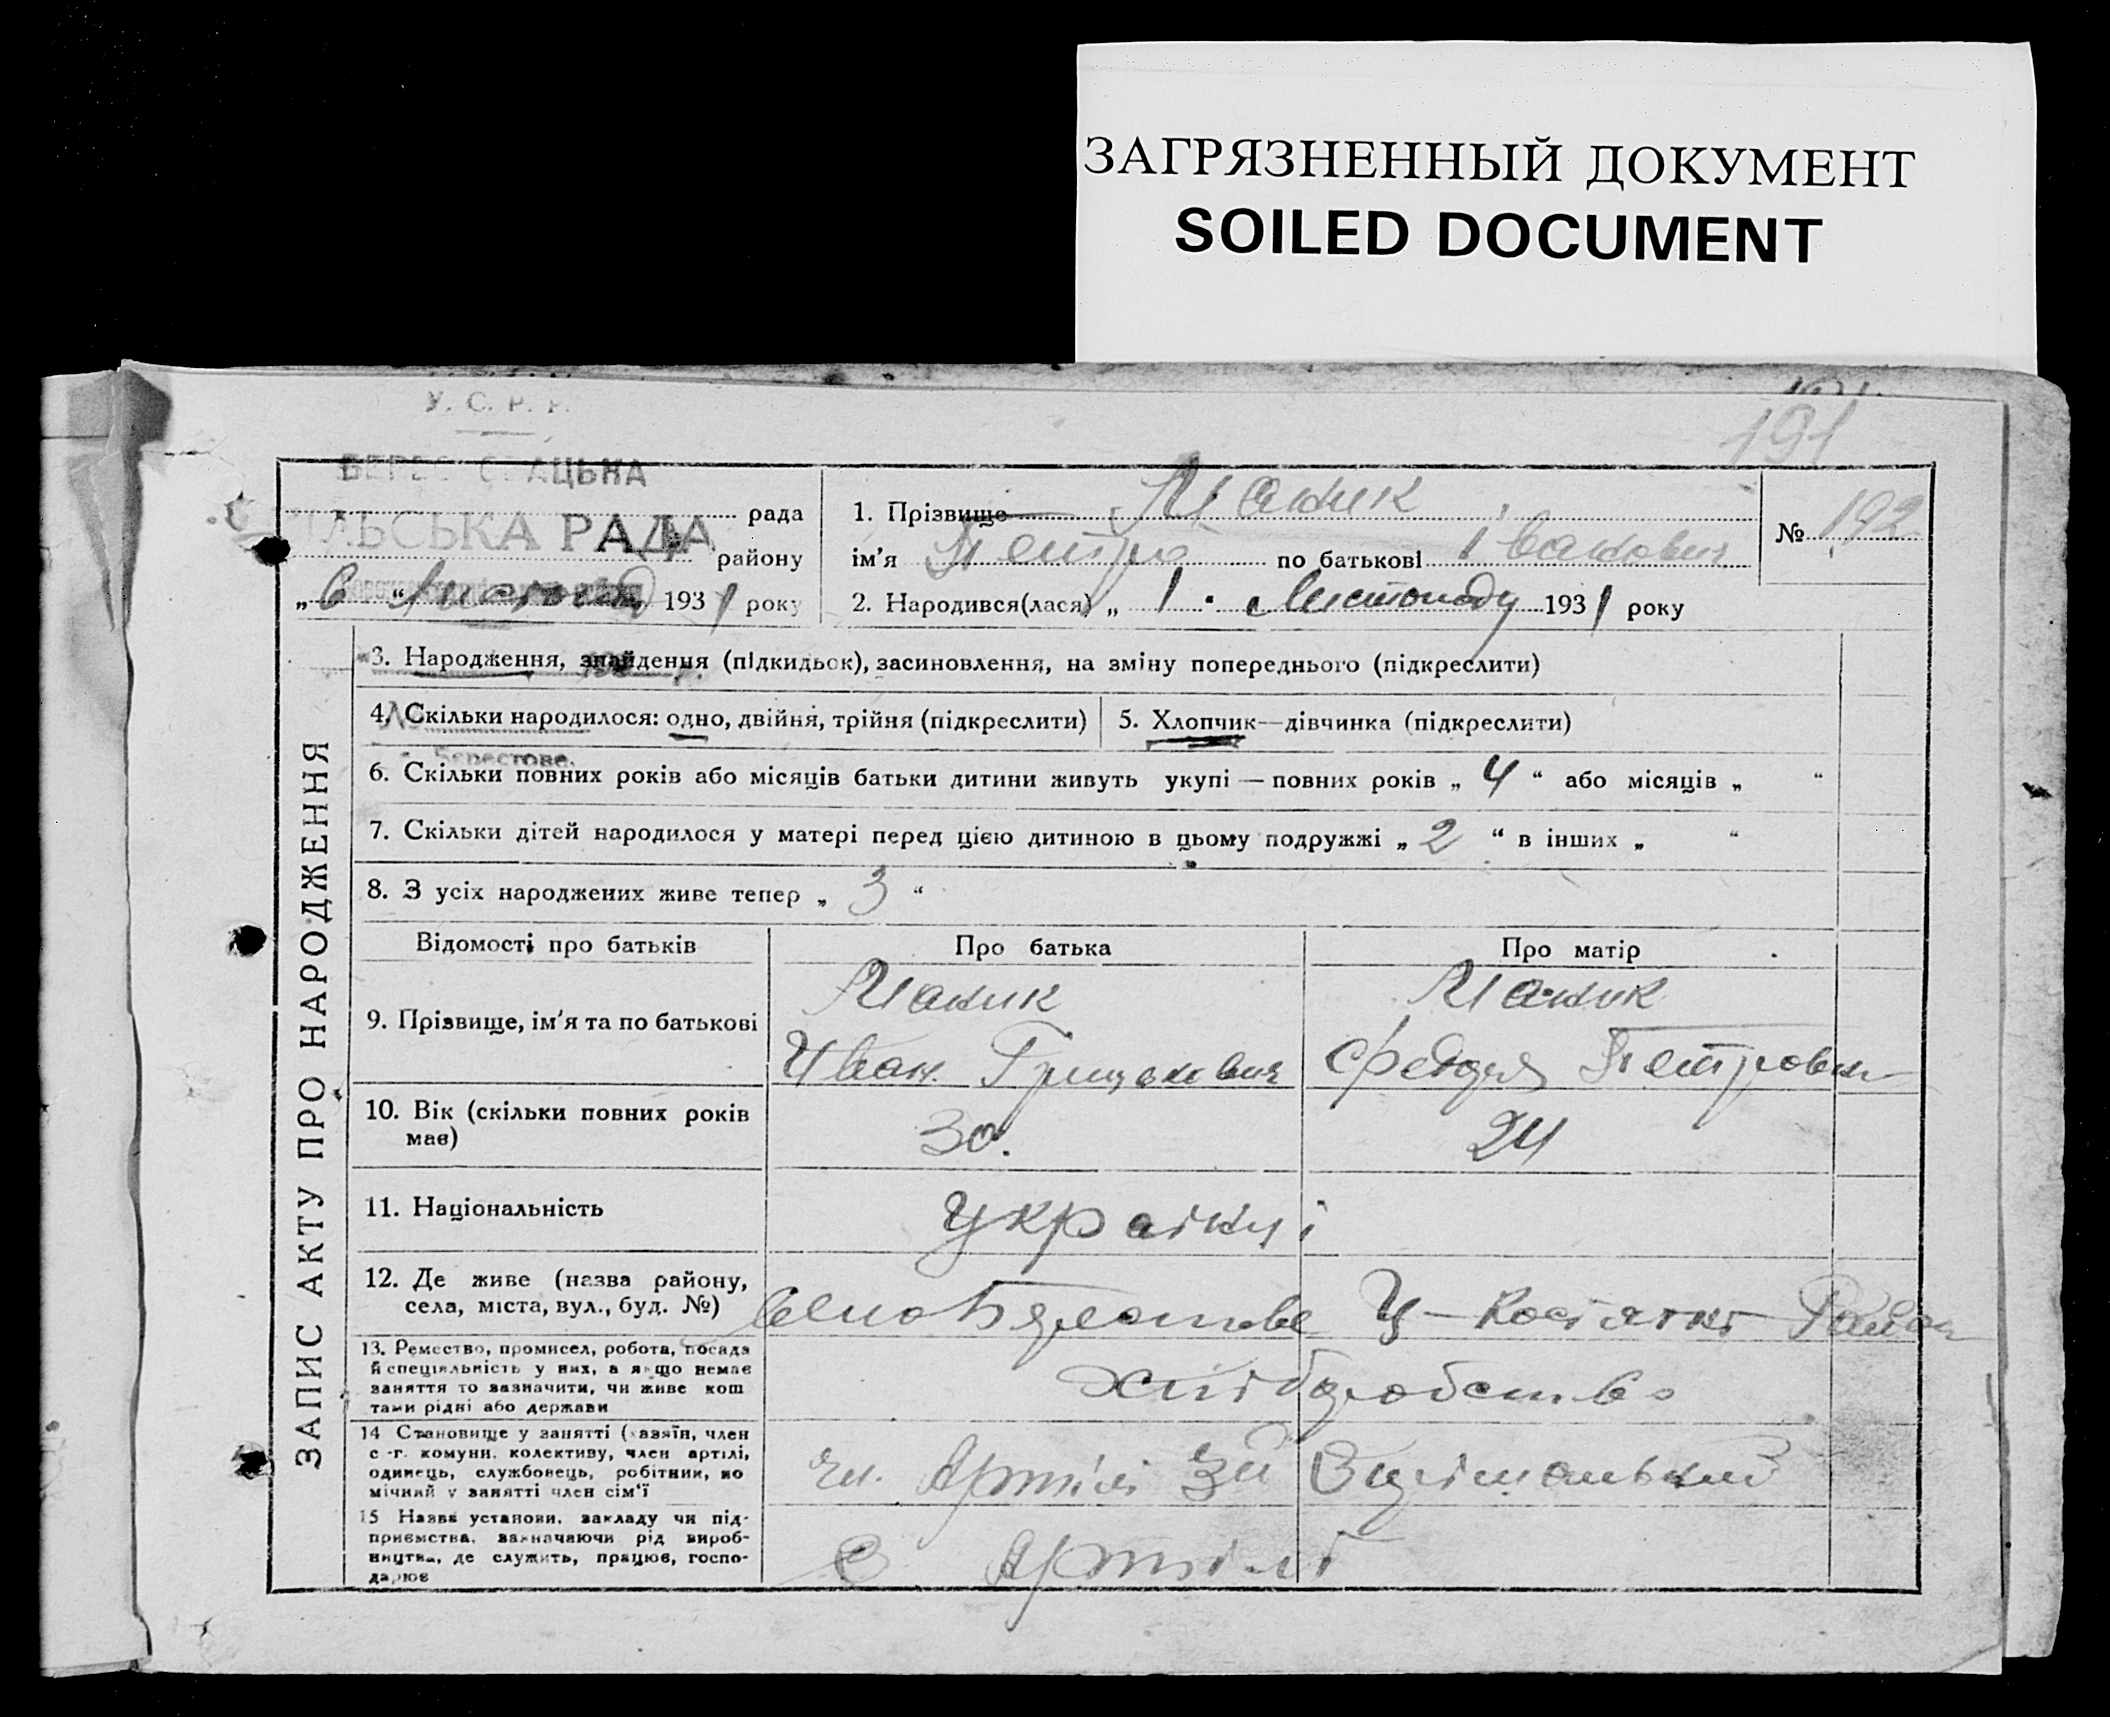 ЗАГРЯЗНЕННЫЙ ДОКУМЕНТ
SOILED DOCUMENT
У. С. Р. Р.
191
рада
РАДА
району
„ 6 " Листопада 1931 року
1. Прізвище Маник
ім'я Петро по батькові Іванович
№ 192
2. Народився(лася) „ 1 . Листопаду 1931 року
ЗАПИС АКТУ ПРО НАРОДЖЕННЯ
3. Народження, знайдення (підкидьок), засиновлення, на зміну попереднього (підкреслити)
4. Скільки народилося: одно, двійня, трійня (підкреслити)
5. Хлопчик—дівчинка (підкреслити)
Берестове.
6. Скільки повних років або місяців батьки дитини живуть укупі — повних років „ 4 “ або місяців „ “
7. Скільки дітей народилося у матері перед цією дитиною в цьому подружжі „ 2 “ в інших „ “
8. З усіх народжених живе тепер „ 3 “
Відомості про батьків
Про батька
Про матір
9. Прізвище, ім'я та по батькові
Маник
Иван Грицькович
Маник
Федоря Петровна
10. Вік (скільки повних років має)
30.
24
11. Національність
Українці
12. Де живе (назва району,
села, міста, вул., буд. №)
Село Берестове Район
13. Ремество, промисел, робота, посада
й спеціяльність у них, а якщо немає
заняття то зазначити, чи живе кош
тами рідні або держави
хліборобство
14 Становище у занятті (хазяїн, член
с.-г. комуни, колективу, член артілі,
одинець, службовець, робітник, по
мічний у занятті член сім'ї
чл. Артілі
15 Назва установи, закладу чи під-
приємства, зазначаючи рід вироб-
ництва, де служить, працює, госпо-
дарює
в Артілі